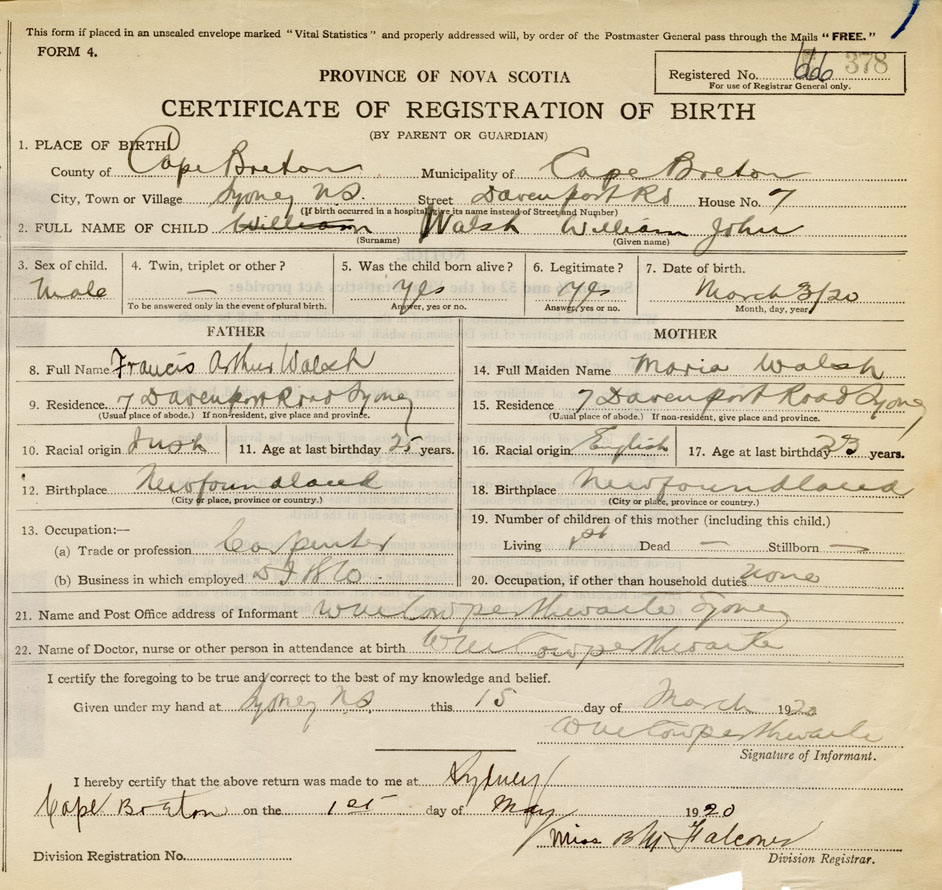 This form if placed in an unsealed envelope marked "Vital Statistics" and properly addressed will, by order of the Postmaster General pass through the Mails "FREE."
FORM 4.
PROVINCE OF NOVA SCOTIA
Registered No. 378
For use of Registrar General only.
CERTIFICATE OF REGISTRATION OF BIRTH
(BY PARENT OR GUARDIAN)
1. PLACE OF BIRTH
County of Cape Breton Municipality of Cape Breton
City, Town or Village Sydney N.S. Street Davenport Rd House No. 7
(If birth occurred in a hospital give its name instead of Street and Number)
2. FULL NAME OF CHILD William Walsh William John
(Surname) (Given name)
3. Sex of child. 4. Twin, triplet or other? 5. Was the child born alive? 6. Legitimate? 7. Date of birth.
Male — yes yes March 3/20
To be answered only in the event of plural birth. Answer, yes or no. Answer, yes or no. Month, day, year
FATHER MOTHER
8. Full Name Francis Arthur Walsh 14. Full Maiden Name Maria Walsh
9. Residence 7 Davenport Road Sydney 15. Residence 7 Davenport Road Sydney
(Usual place of abode.) If non-resident, give place and province. (Usual place of abode.) If non-resident, give place and province.
10. Racial origin Irish 11. Age at last birthday 25 years. 16. Racial origin English 17. Age at last birthday 23 years.
12. Birthplace Newfoundland 18. Birthplace Newfoundland
(City or place, province or country.) (City or place, province or country.)
13. Occupation:— 19. Number of children of this mother (including this child.)
(a) Trade or profession Carpenter Living 1st Dead — Stillborn —
(b) Business in which employed 20. Occupation, if other than household duties none
21. Name and Post Office address of Informant Cowperthwaite Sydney
22. Name of Doctor, nurse or other person in attendance at birth Cowperthwaite
I certify the foregoing to be true and correct to the best of my knowledge and belief.
Given under my hand at Sydney N.S. this 15 day of March 1920
Cowperthwaite
Signature of Informant.
I hereby certify that the above return was made to me at Sydney
Cape Breton on the 1st day of May 1920
Miss B M Falconer
Division Registration No. Division Registrar.